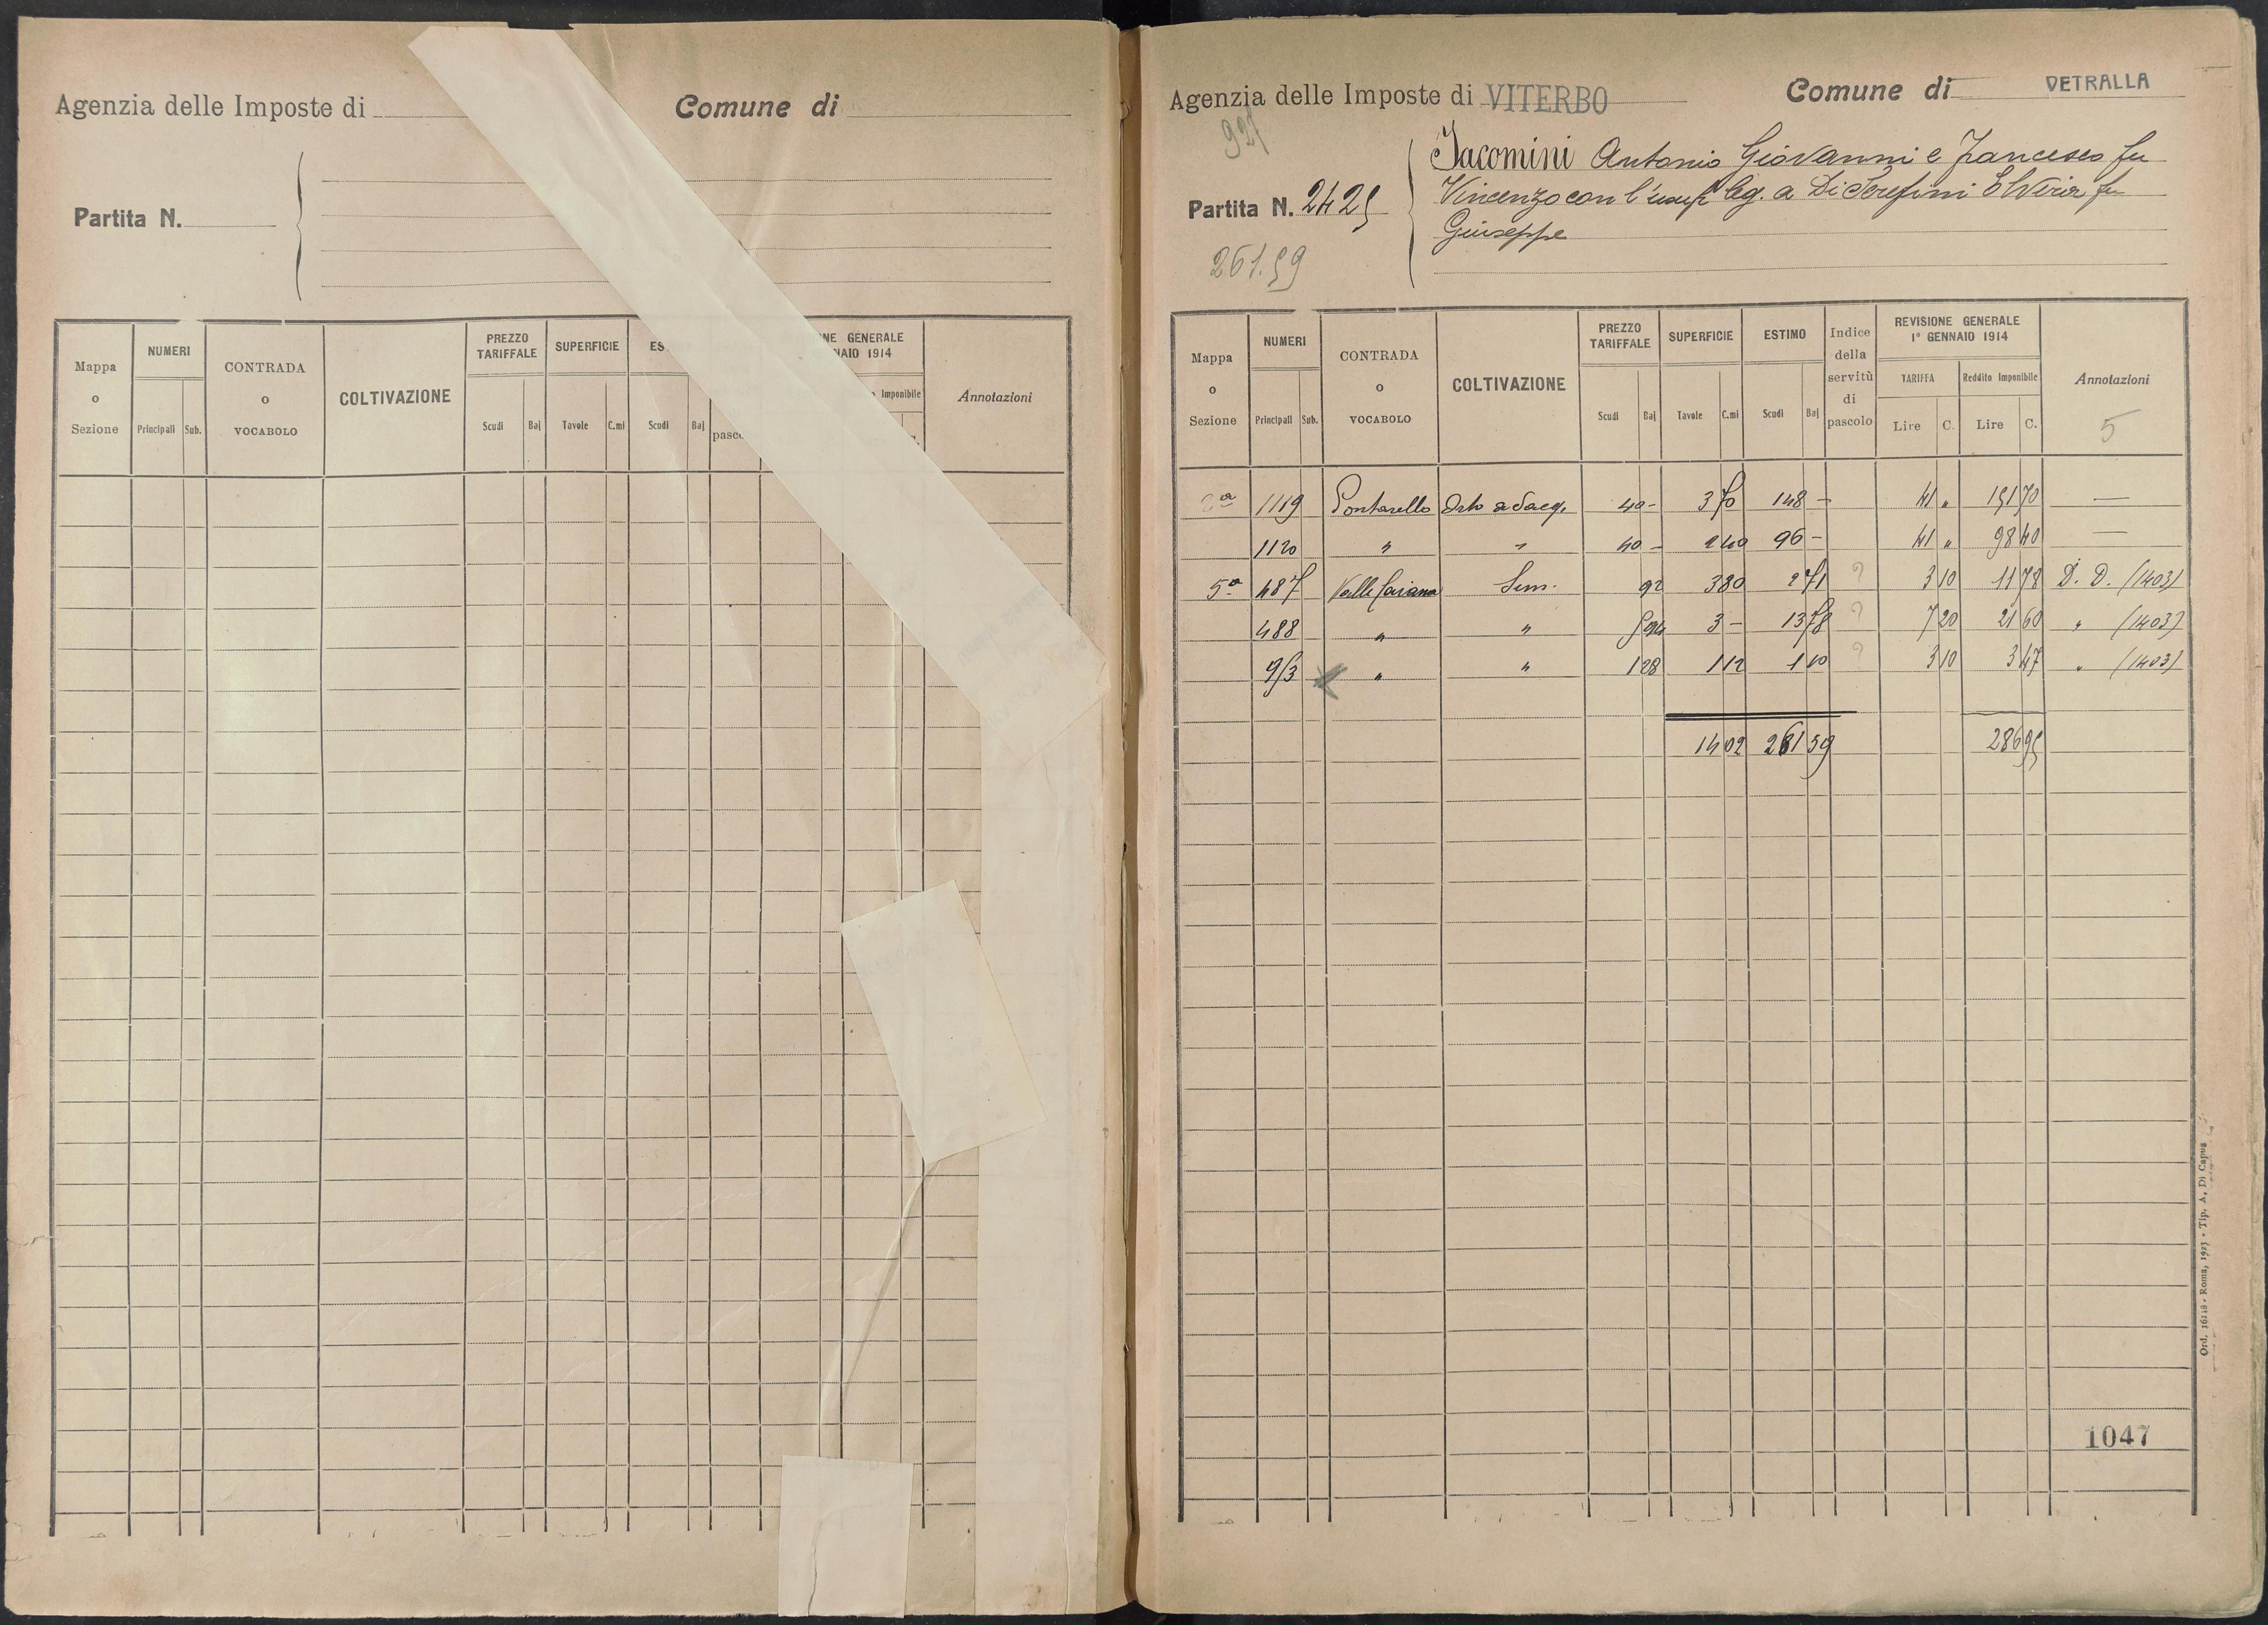 Agenzia delle Imposte di
Comune di
Partita N.
Mappa o Sezione
NUMERI
Principali Sub.
CONTRADA o VOCABOLO
COLTIVAZIONE
PREZZO TARIFFALE
Scudi Baj
SUPERFICIE
Tavole C.mi
ES
Scudi Baj
pasco
NE GENERALE
NAIO 1914
Imponibile
Annotazioni
Agenzia delle Imposte di VITERBO
Comune di VETRALLA
927
Partita N. 2425
261.59
Iacomini Antonio Giovanni e Francesco fu
Vincenzo con l'usuf. leg. a Di Serafini Elvira fu
Giuseppe
Mappa o Sezione
NUMERI
Principali Sub.
CONTRADA o VOCABOLO
COLTIVAZIONE
PREZZO TARIFFALE
Scudi Baj
SUPERFICIE
Tavole C.mi
ESTIMO
Scudi Baj
Indice della servitù di pascolo
REVISIONE GENERALE
1° GENNAIO 1914
TARIFFA
Lire C.
Reddito Imponibile
Lire C.
Annotazioni
5
2a 1119 Pontarello Orto adacq. 40 - 3 70 148 - 41 " 151 70 —
1120 " " 40 - 2 40 96 - 41 " 98 40 —
5a 487 Valle Caiana Sem. 92 3 80 2 71 ? 3 10 11 78 D. D. (1403)
488 " " 5 94 3 - 13 78 ? 7 20 21 60 " (1403)
9/3 " " 1 28 1 12 1 10 ? 3 10 3 47 " (1403)
14 02 261 59 286 95
1047
Ord. 16118 - Roma, 1923 - Tip. A. Di Capua